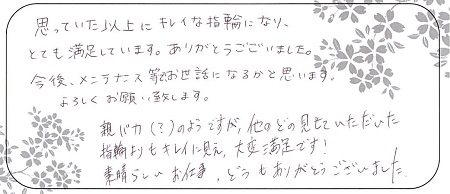 思っていた以上にキレイな指輪になり、
とても満足しています。ありがとうございました。
今後、メンテナンス等でお世話になるかと思います。
よろしくお願い致します。
親バカ(?)のようですが、他のどの見せていただいた
指輪よりもキレイに見え、大変満足です!
素晴らしいお仕事、どうもありがとうございました。